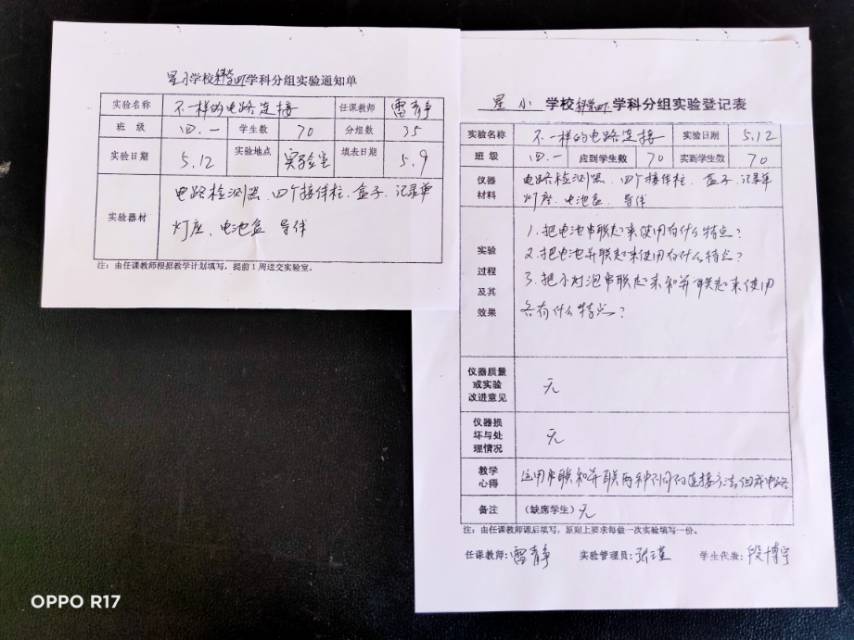 星小学校科学四学科分组实验通知单
实验名称 不一样的电路连接 任课教师 雷青争
班 级 四.一 学生数 70 分组数 35
实验日期 5.12 实验地点 实验室 填表日期 5.9
实验器材
电路检测器、四个接线柱、盒子、记录单
灯座、电池盒 导线
注：由任课教师根据教学计划填写，提前1周送交实验室。
星 小 学校 学科分组实验登记表
实验名称 不一样的电路连接 实验日期 5.12
班 级 四.一 应到学生数 70 实到学生数 70
仪器
材料
电路检测器、四个接线柱、盒子、记录单
灯座、电池盒、导线
实验
过程
及其
效果
1.把电池串联起来使用有什么特点？
2.把电池并联起来使用有什么特点？
3.把小灯泡串联起来和并联起来使用
各有什么特点？
仪器质量
或实验
改进意见
无
仪器损
坏与处
理情况
无
教学
心得
运用串联和并联两种不同的连接方法组成电路
备注 （缺席学生）无
注：由任课教师课后填写，原则上要求每做一次实验填写一份。
任课教师： 实验管理员： 学生代表：段博宇
OPPO R17